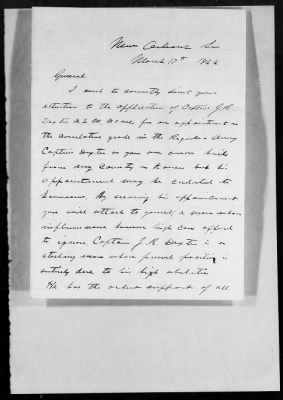 New Orleans La
March 17th 1866
General
I wish to earnestly direct your
attention to the application of Captain J. R.
Dexter A.Q.M. U.S.Vol. for an appointment in
the correlative grade in the Regular Army
Captain Dexter as you are aware hails
from my County in but his
appointment may be credited to
Louisiana. By securing his appointment
you will attach to yourself a man whose
influence no however high can afford
to ignore. Captain J. R. Dexter is a
sterling man whose present position is
entirely due to his high abilities
He has the ardent support of all